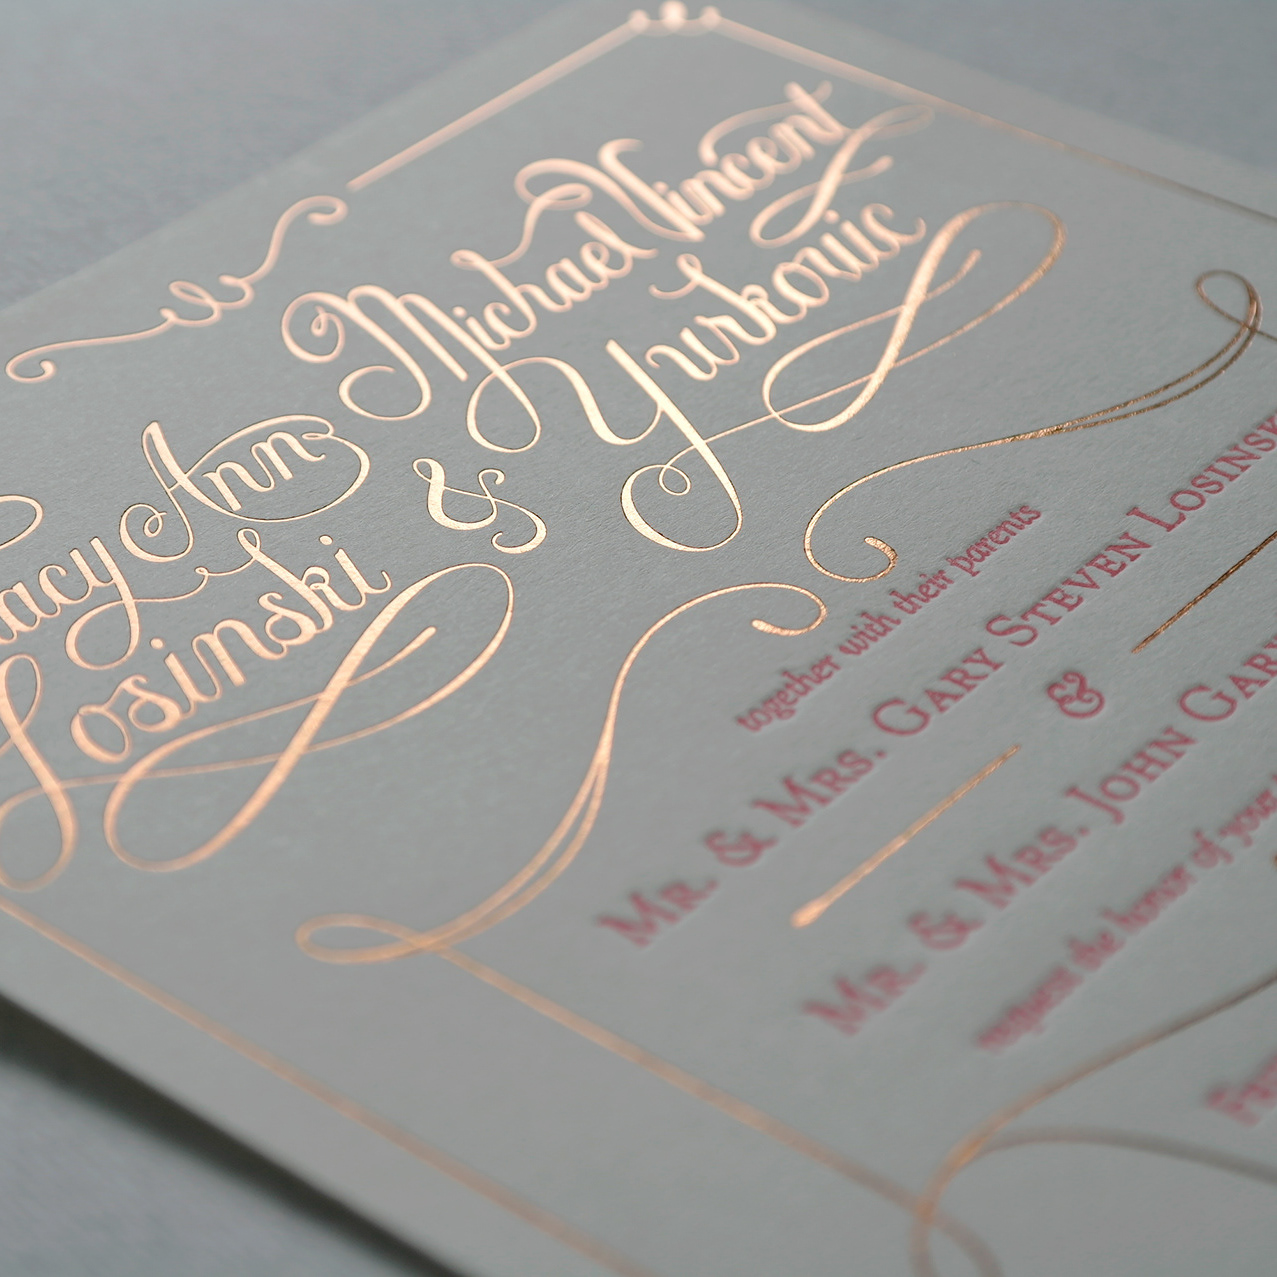 Ann
Losinski
&
Michael Vincent
Yurkovic
together with their parents
MR. & MRS. GARY STEVEN LOSINSK
&
MR. & MRS. JOHN GAR
request the honor of your